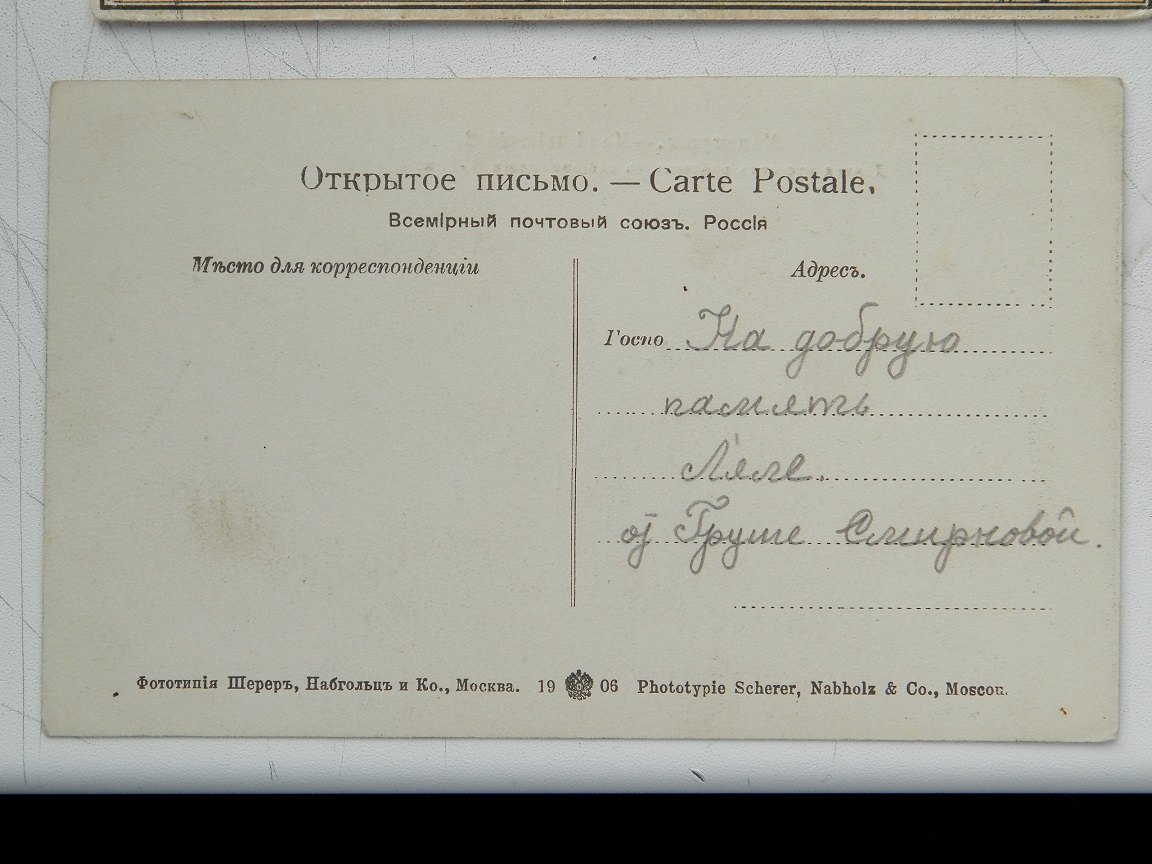 Открытое письмо. — Carte Postale.
Всемірный почтовый союзъ. Россія
Мѣсто для корреспонденціи
Адресъ.
Госпо На добрую
память
Ляле.
от Груше Смирновой.
Фототипія Шереръ, Набгольцъ и Ко., Москва. 19 06 Phototypie Scherer, Nabholz & Co., Moscou.